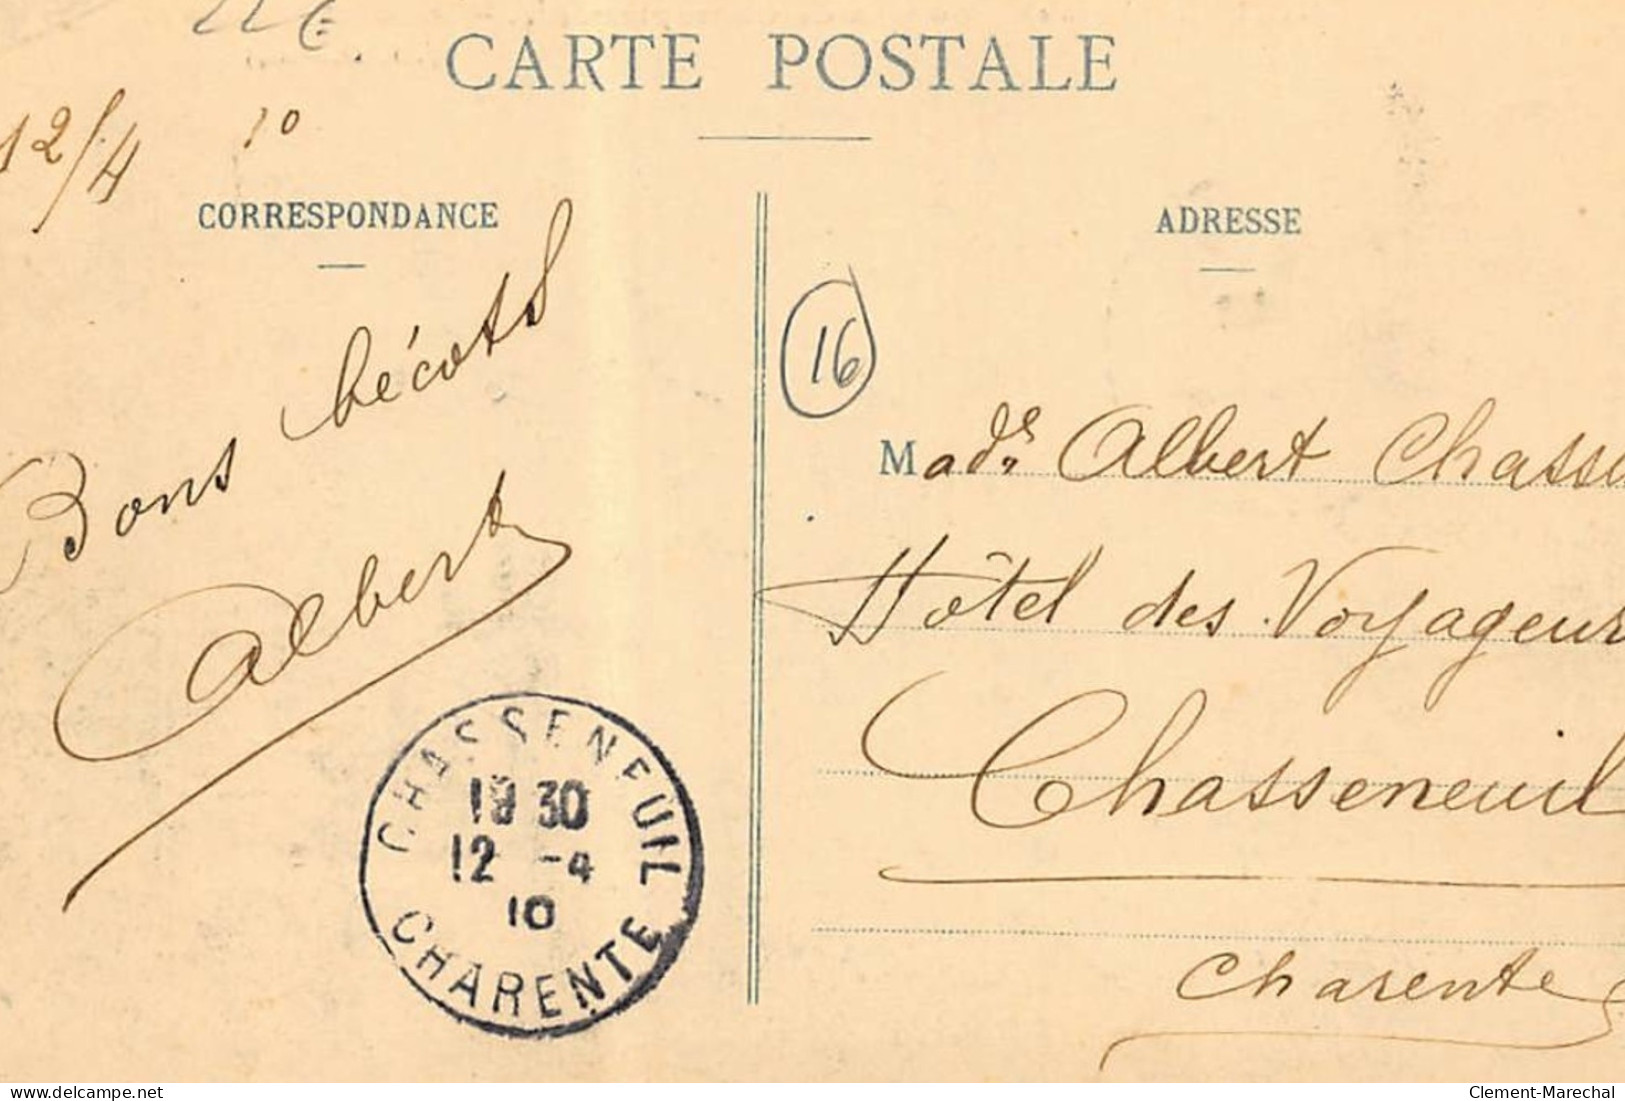 22€
CARTE POSTALE
12/4 10
CORRESPONDANCE
Bons bécots
Albert
CHASSENEUIL
19 30
12 -4
10
CHARENTE
ADRESSE
16
Made Albert
Hôtel des Voyageurs
Chasseneuil
Charente
delcampe.net
Clement-Marechal